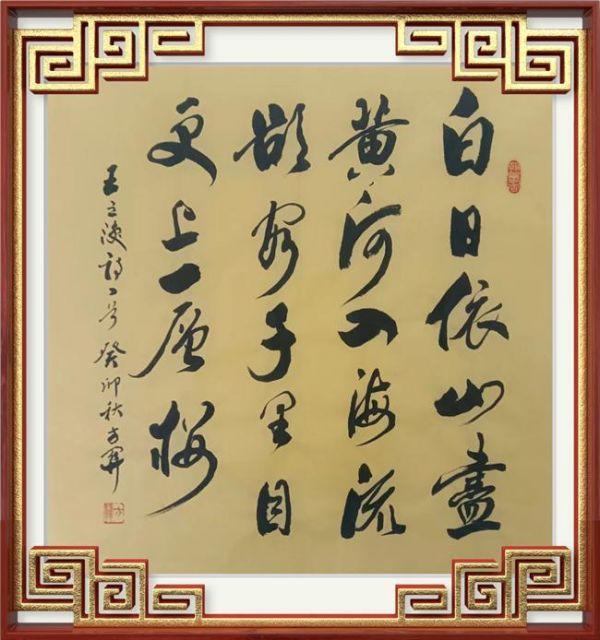 白日依山盡
黄河入海流
欲穷千里目
更上一层楼
王之涣诗一首 癸卯秋